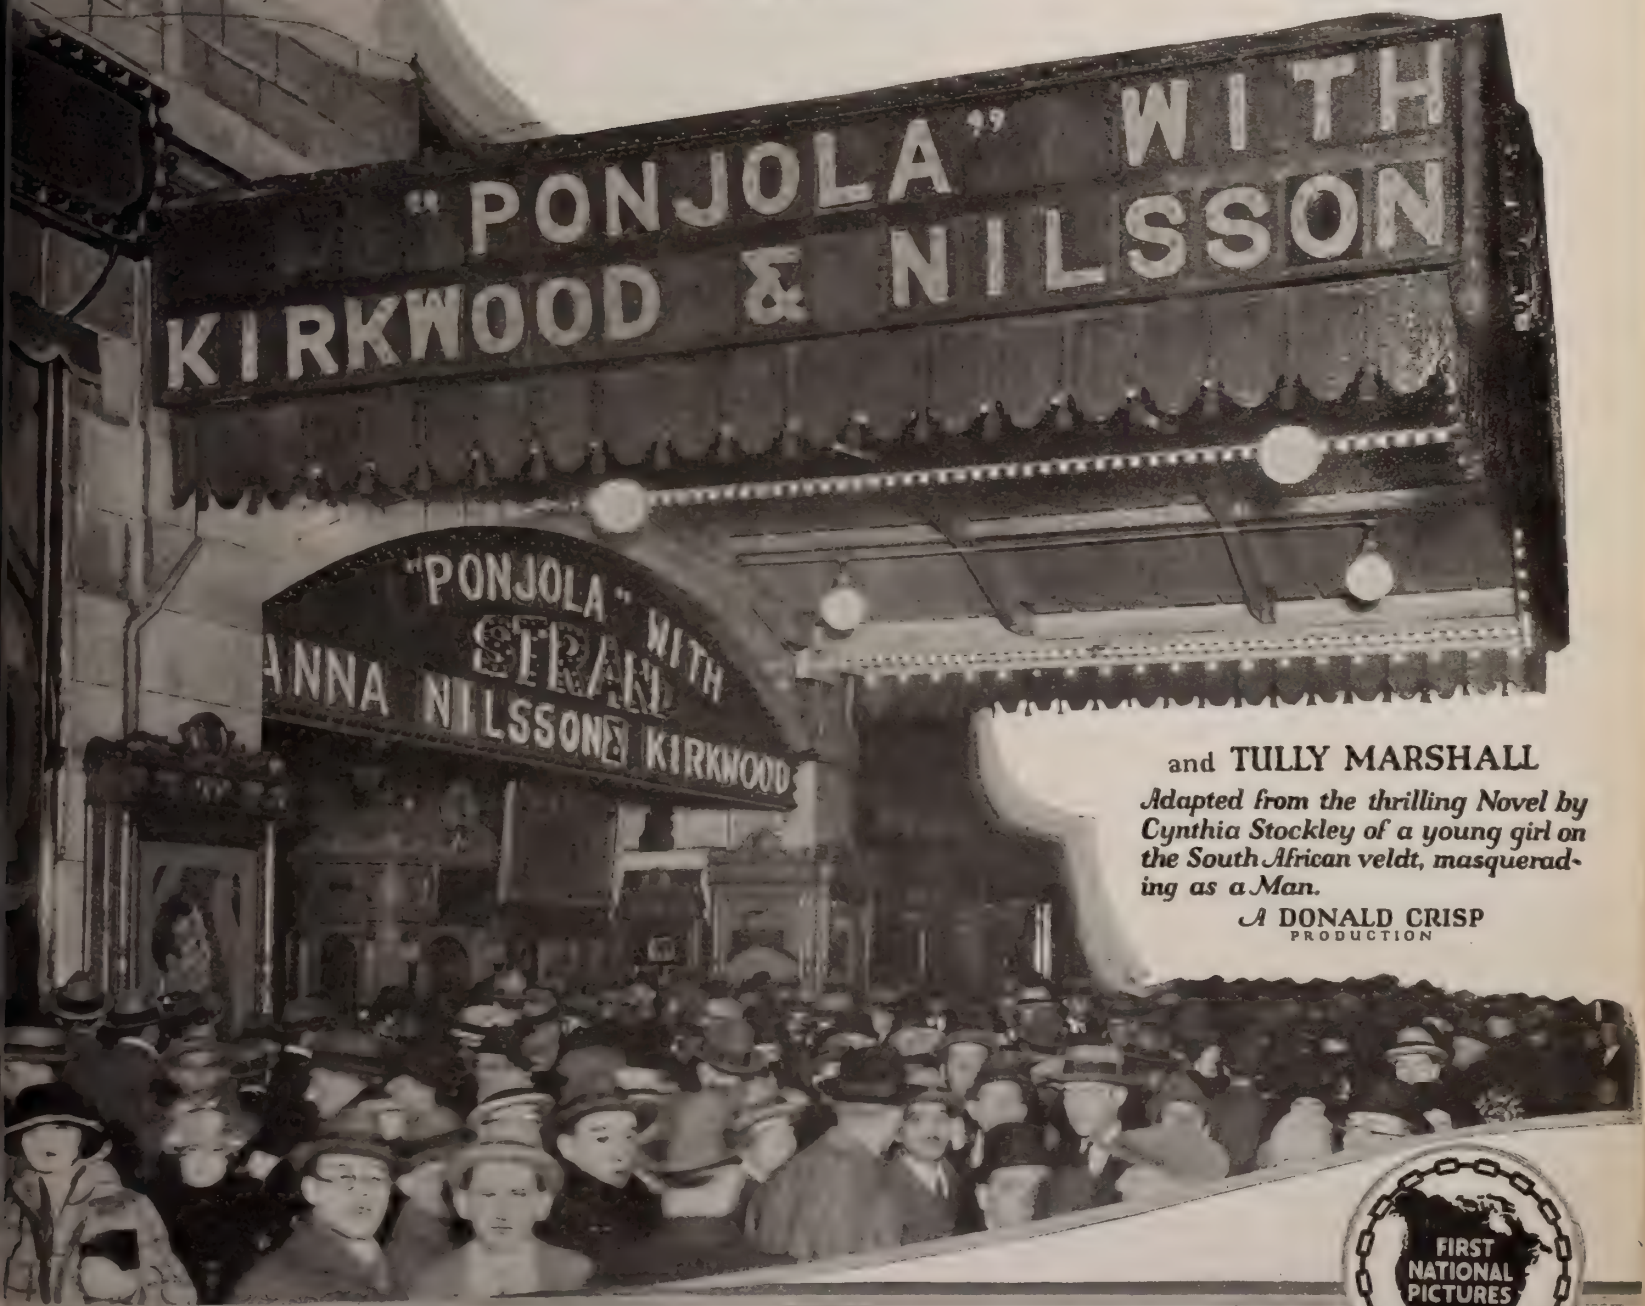 "PONJOLA" WITH
KIRKWOOD & NILSSON
"PONJOLA" WITH
STRAND
ANNA NILSSON & KIRKWOOD
and TULLY MARSHALL
Adapted from the thrilling Novel by
Cynthia Stockley of a young girl on
the South African veldt, masquerad-
ing as a Man.
A DONALD CRISP
PRODUCTION
FIRST
NATIONAL
PICTURES